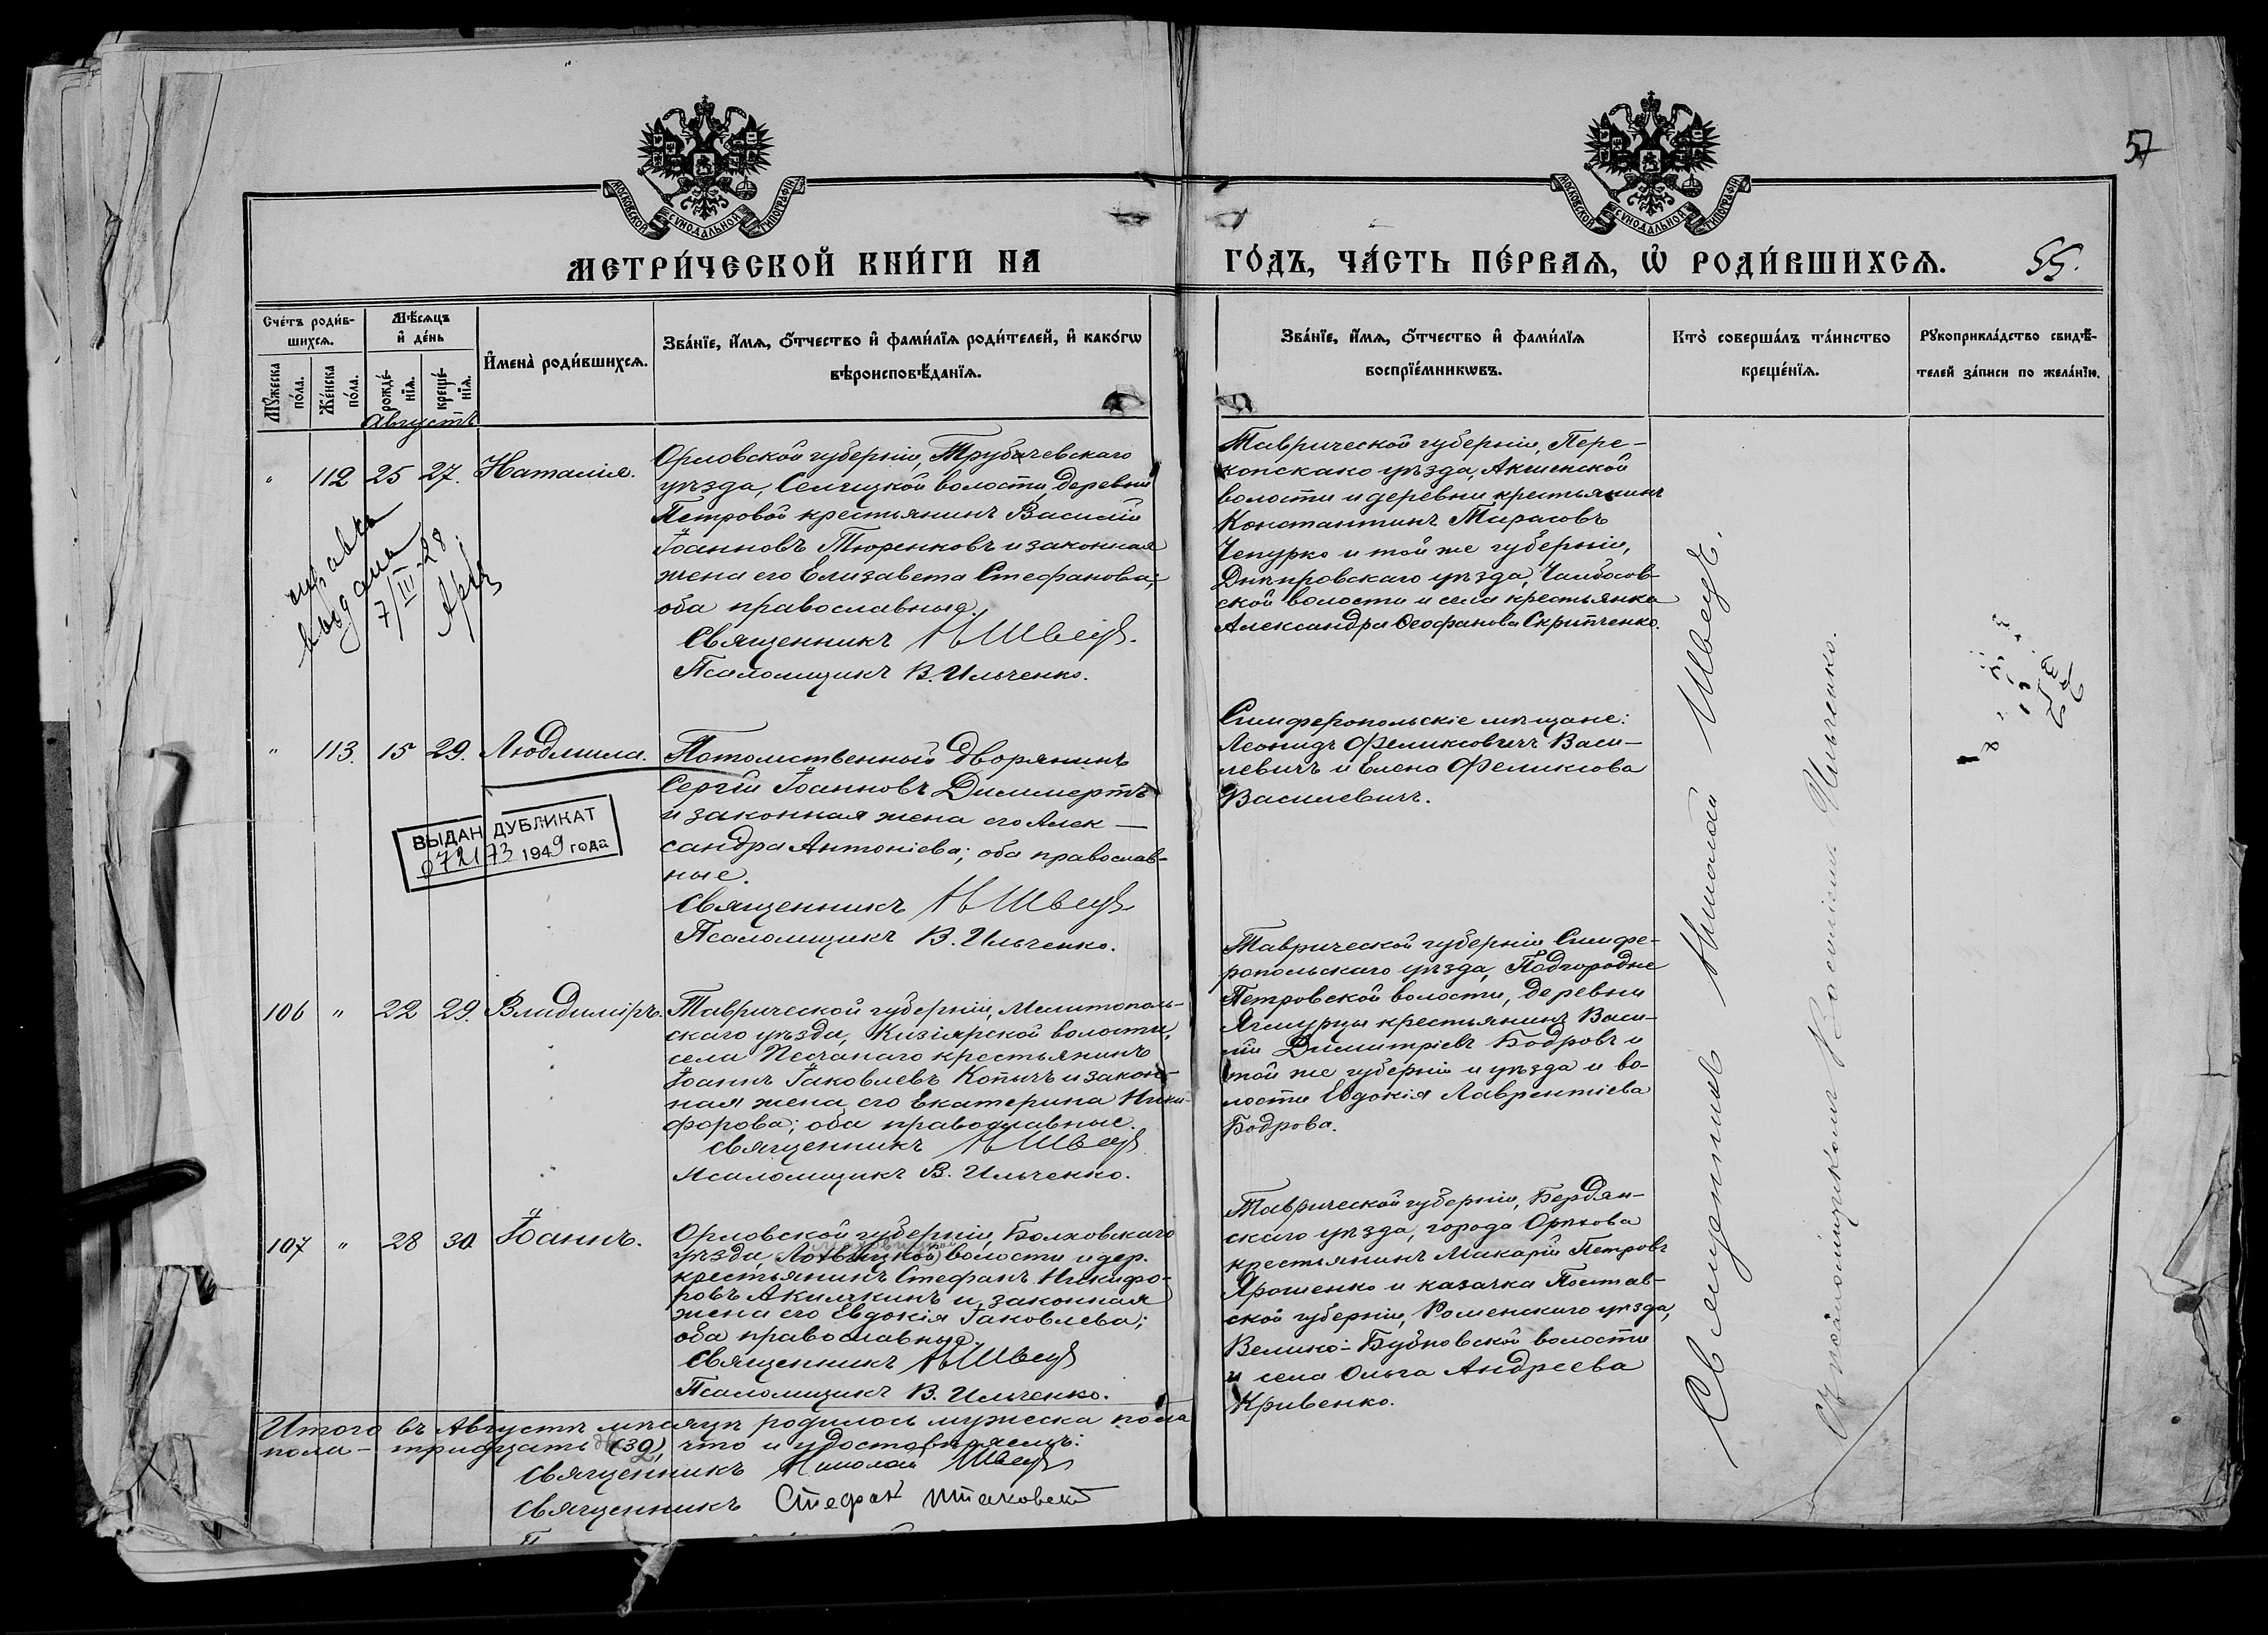 57
МОСКОВСКОЙ СѴНОДАЛЬНОЙ ТИПОГРАФІИ
МОСКОВСКОЙ СѴНОДАЛЬНОЙ ТИПОГРАФІИ
МЕТРИ́ЧЕСКОЙ КНИ́ГИ НА
ГО́ДЪ, ЧА́СТЬ ПЕ́РВАѦ, Ѡ҆ РОДИ́ВШИХСѦ.
55.
Сче́тъ роди́в-
шихсѧ.
Мꙋ́жеска по́ла.
Же́нска по́ла.
Мѣ́сѧцъ
и҆ де́нь
рожде́-
нїѧ.
креще́-
нїѧ.
И҆мена̀ роди́вшихсѧ.
Зва́нїе, и҆́мѧ, ѻ҆́тчество и҆ фами́лїѧ роди́телей, и҆ како́гѡ
вѣроисповѣ́данїѧ.
Зва́нїе, и҆́мѧ, ѻ҆́тчество и҆ фами́лїѧ
воспрїе́мникѡвъ.
Кто̀ соверша́лъ та́инство
креще́нїѧ.
Рꙋкоприкла́дство свидѣ́-
телей за́писи по жела́нїю.
Августъ
" 112 25 27. Наталія.
Орловской губерніи, Трубчевскаго
уѣзда, Селецкой волости, деревни
Петровой крестьянинъ Василій
Іоанновъ Тюренковъ и законная
жена его Елизавета Стефанова;
оба православные.
Священникъ Н Швецъ.
Псаломщикъ В. Ильченко.
Таврической губерніи, Пере-
копскаго уѣзда,
волости и деревни крестьянинъ
Константинъ Тарасовъ
Чепурко и той же губерніи,
Днѣпровскаго уѣзда, Чалбасов-
ской волости и села крестьянка
Александра Ѳеофанова Скрипченко.
справка
выдана
7/III-28
" 113. 15 29. Людмила.
Потомственный дворянинъ
Сергій Іоанновъ Диммертъ
и законная жена его Алек-
сандра Антоніева; оба православ-
ные.
Священникъ Н Швецъ
Псаломщикъ В. Ильченко.
Симферопольскіе мѣщане:
Леонидъ Феликсовичъ Васи-
левичъ и Елена Феликсова
Василевичъ.
ВЫДАН ДУБЛИКАТ
072173 1949 года
106 " 22 29. Владиміръ.
Таврической губерніи, Мелитополь-
скаго уѣзда, Кизіярской волости,
села Песчанаго крестьянинъ
Іоаннъ Іаковлевъ Копычъ и закон-
ная жена его Екатерина Ники-
форова; оба православные.
Священникъ Н Швецъ
Псаломщикъ В. Ильченко.
Таврической губерніи Симфе-
ропольскаго уѣзда, Подгородне
Петровской волости, деревни
крестьянинъ Васи-
лій Димитріевъ Бодровъ и
той же губерніи и уѣзда и во-
лости Евдокія Лаврентіева
Бодрова.
107 " 28 30. Іоаннъ.
Орловской губерніи, Болховскаго
уѣзда, волости и дер.
крестьянинъ Стефанъ Никифо-
ровъ Акимкинъ и законная
жена его Евдокія Іаковлева;
оба православные.
Священникъ Н Швецъ
Псаломщикъ В. Ильченко.
Таврической губерніи, Бердян-
скаго уѣзда, города Орѣхова
крестьянинъ Макарій Петровъ
Ярошенко и казачка Полтав-
ской губерніи, Роменскаго уѣзда,
Велико-Бубновской волости
и села Ольга Андреева
Кривенко.
Священникъ Николай Швецъ.
Съ псаломщикомъ Василіемъ Ильченко.
Итого въ Августѣ мѣсяцѣ родилось мужеска пола
пола - тридцать (32), что и удостовѣряемъ:
Священникъ Николай Швецъ
Священникъ Стефан